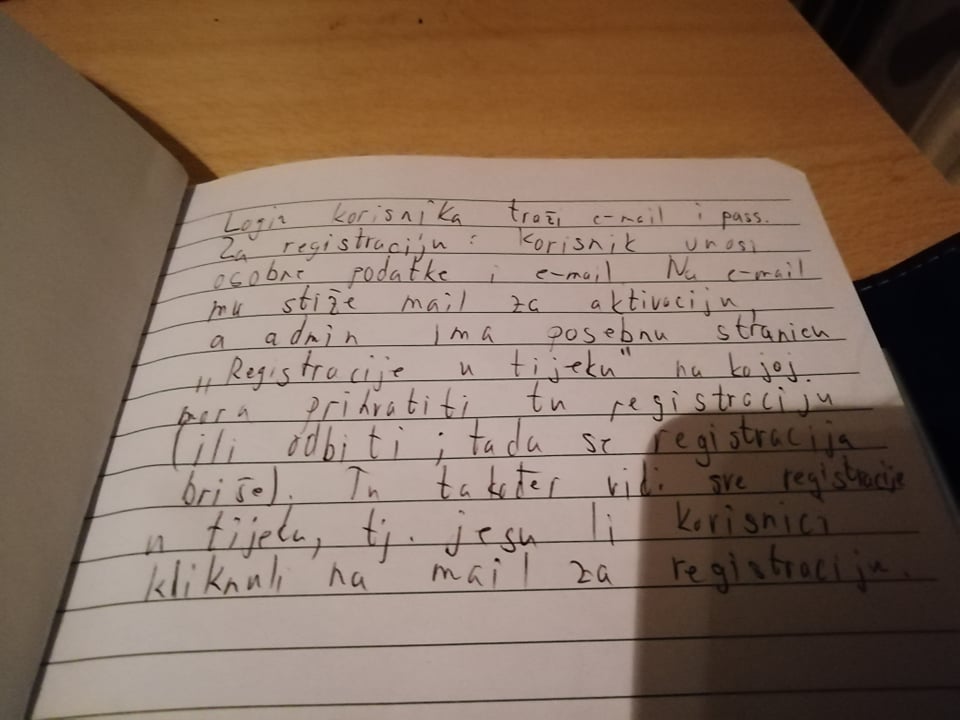 Login korisnika traži e-mail i pass.
Za registraciju: korisnik unosi
osobne podatke i e-mail. Na e-mail
mu stiže mail za aktivaciju,
a admin ima posebnu stranicu
„Registracije u tijeku" na kojoj
mora prihvatiti tu registraciju
(ili odbiti; tada se registracija
briše). Tu također vidi sve registracije
u tijeku, tj. jesu li korisnici
kliknuli na mail za registraciju.